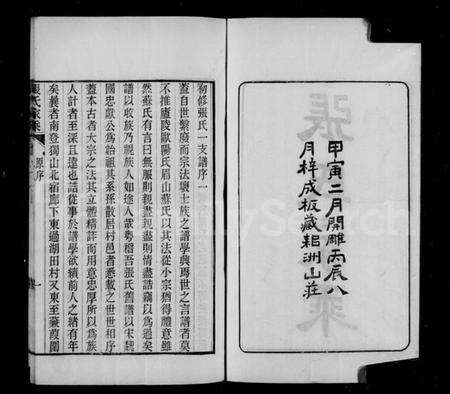 甲寅二月開雕丙辰八
月梓成板藏耜洲山莊
初修張氏一支譜序一
蓋自世繫廢而宗法壞士族之譜學興焉世之言譜者莫
不推廬陵歐陽氏眉山蘇氏以其法從小宗猶得禮意雖
然蘇氏有言曰無服則親盡親盡則情盡詁竊以為過矣
譜以收族乃視族人如途人蒙弗稽吾張氏舊譜以宋魏
國忠獻公為始祖其系孫散居村邑者悉載之世世相序
蓋本古者大宗之法其立體精詳而用意忠厚所以為族
人計者至深且遠也詁從事於譜學欲續前人之緒有年
矣曩者南登獨山北宿廊下東過湖田村又東至葭園
張氏家乘
原序
一